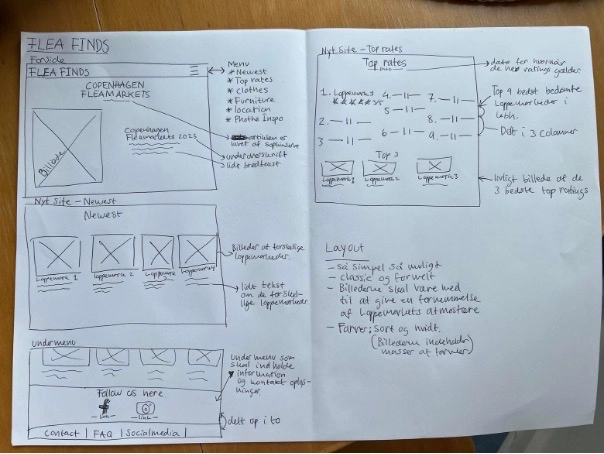 FLEA FINDS
Forside
FLEA FINDS
COPENHAGEN
FLEAMARKETS
Billede
Copenhagen
Fleamarkets 2023
Menu
* Newest
* Top rates
* Clothes
* Furniture
* location
* Photho Inspo
artiklen er
lavet af
underoverskrift
lidt brødtekst
Nyt Site - Newest
Newest
loppemark 1
loppemark 2
loppemark
loppemark
Billeder af forskellige
loppemarkeder.
lidt tekst
om de forskel-
lige loppemarkeder
undermenu
Follow us here
link
link
Contact | FAQ | Socialmedia |
Under menu som
skal indholde
information
og kontakt oplys-
ninger
delt op i to
Nyt Site - Top rates
Top rates
dato
dato for hvornår
de her ratings gælder
1. Loppemark
2. — 11 —
3 — 11 —
4. — 11 —
5 — 11 —
6 — 11 —
7. — 11 —
8. — 11 —
9. — 11 —
Top 9 bedst bedømte
Loppemarkeder i
kbh.
Delt i 3 colonner
Top 3
Loppemark 1
Loppemark 2
Loppemark 3
billede af de
3 bedste top ratings
Layout
- så simpel så muligt
- classic og formelt
- Billederne skal være med
til at give en fornemmelse
af loppemarkets atmosfære
- Farver: sort og hvidt.
(Billederne indeholder
masser af farver)